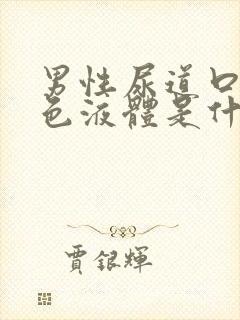 男性尿道口
色液體是什
賈銀輝